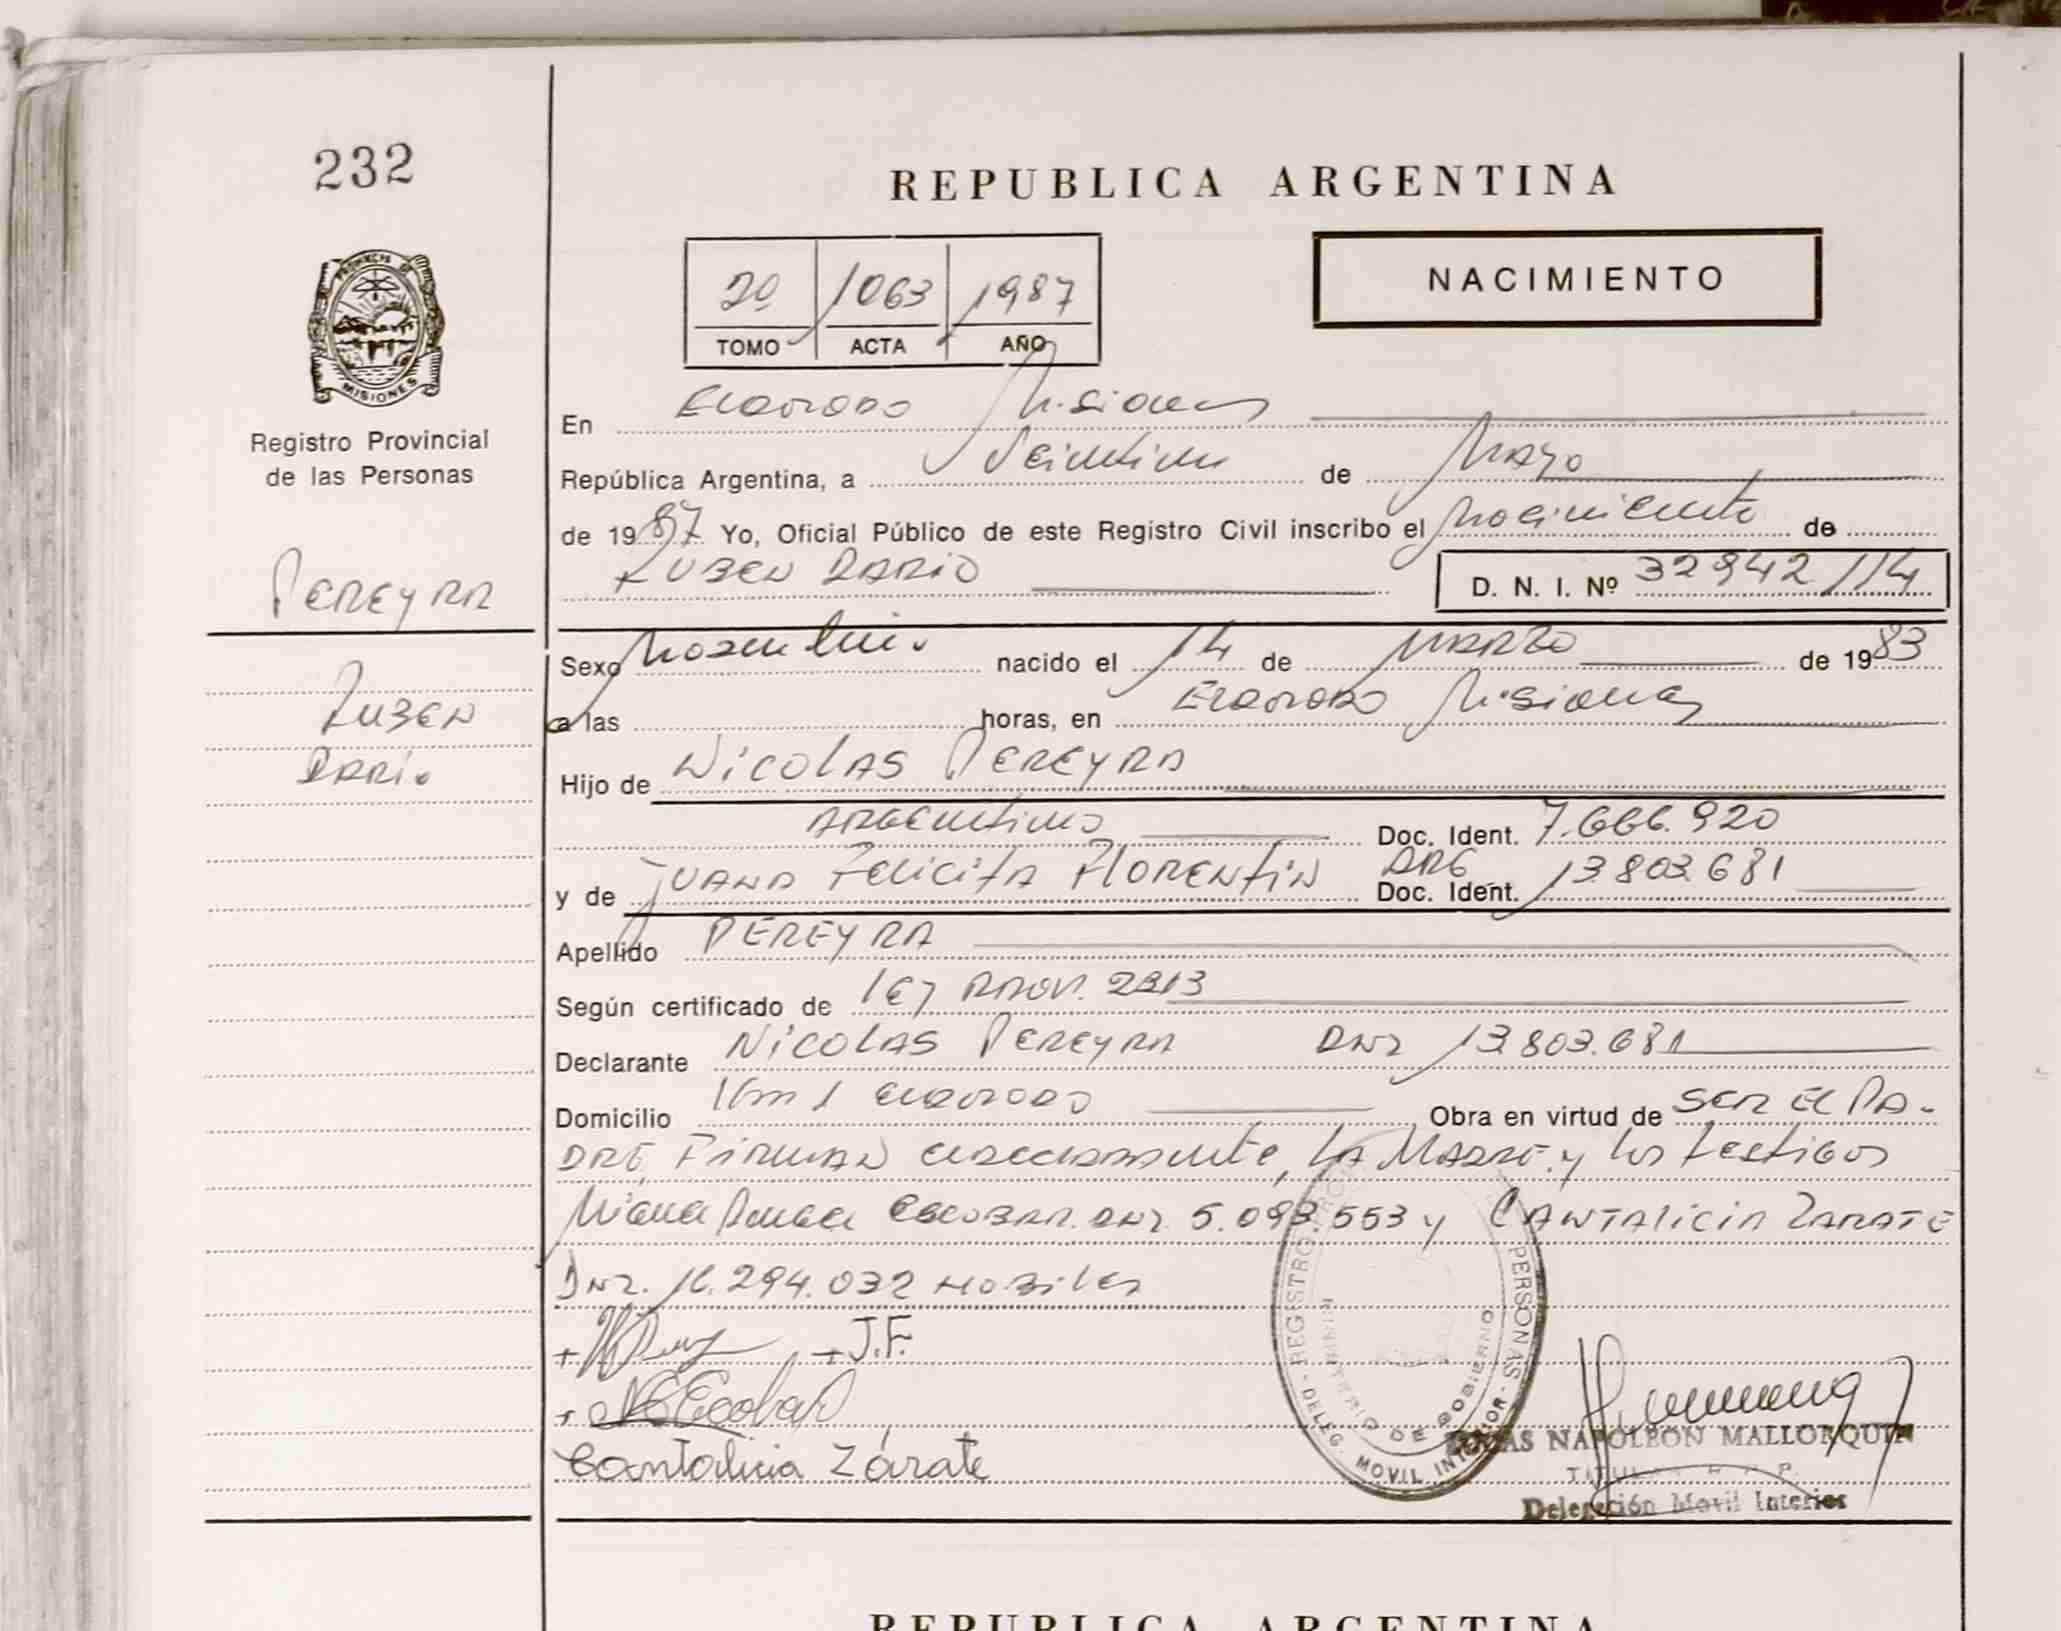 232
REPUBLICA ARGENTINA
NACIMIENTO
2º 1063 1987
TOMO ACTA AÑO
PROVINCIA DE MISIONES
Registro Provincial
de las Personas
PEREYRA
RUBEN
DARIO
En ELDORADO Misiones
República Argentina, a de MAYO
de 1987 Yo, Oficial Público de este Registro Civil inscribo el Nacimiento de
RUBEN DARIO D. N. I. Nº 32942114
Sexo Masculino nacido el 14 de MARZO de 1983
a las horas, en ELDORADO Misiones
Hijo de NICOLAS PEREYRA
ARGENTINO Doc. Ident. 7.666.920
y de JUANA FELICITA FLORENTIN ARG Doc. Ident. 13.803.681
Apellido PEREYRA
Según certificado de LEY PROV. 2313
Declarante NICOLAS PEREYRA DNI 13.803.681
Domicilio Km 1 ELDORADO Obra en virtud de SER EL PA-
DRE, FIRMAN , LA MADRE y los testigos
ESCOBAR. DNI. 5.093.553 y CANTALICIA ZARATE
DNI. 16.294.032 HABILES
+ + J.F.
+ Escobar
Cantalicia Zárate
REGISTRO PERSONAS - DELEG. MOVIL INTERIOR -
MINISTERIO DE GOBIERNO
NAPOLEON MALLORQUIN
TITULAR
Delegación Movil Interior
REPUBLICA ARGENTINA